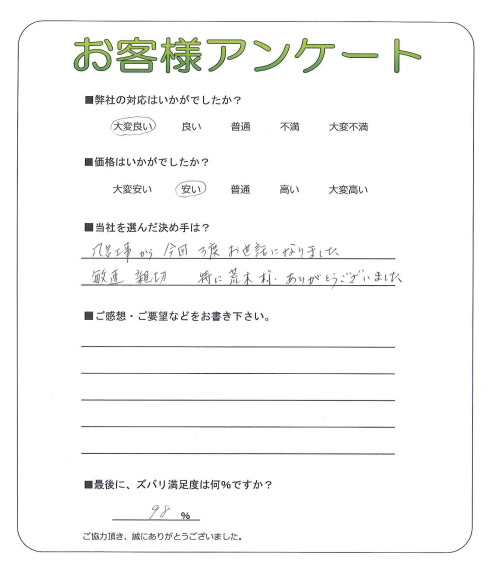 お客様アンケート
■弊社の対応はいかがでしたか？
大変良い 良い 普通 不満 大変不満
■価格はいかがでしたか？
大変安い 安い 普通 高い 大変高い
■当社を選んだ決め手は？
工事から 今回 3度 お世話になりました
敏速 親切 特に 荒木様 ありがとうございました
■ご感想・ご要望などをお書き下さい。
■最後に、ズバリ満足度は何%ですか？
98 %
ご協力頂き、誠にありがとうございました。